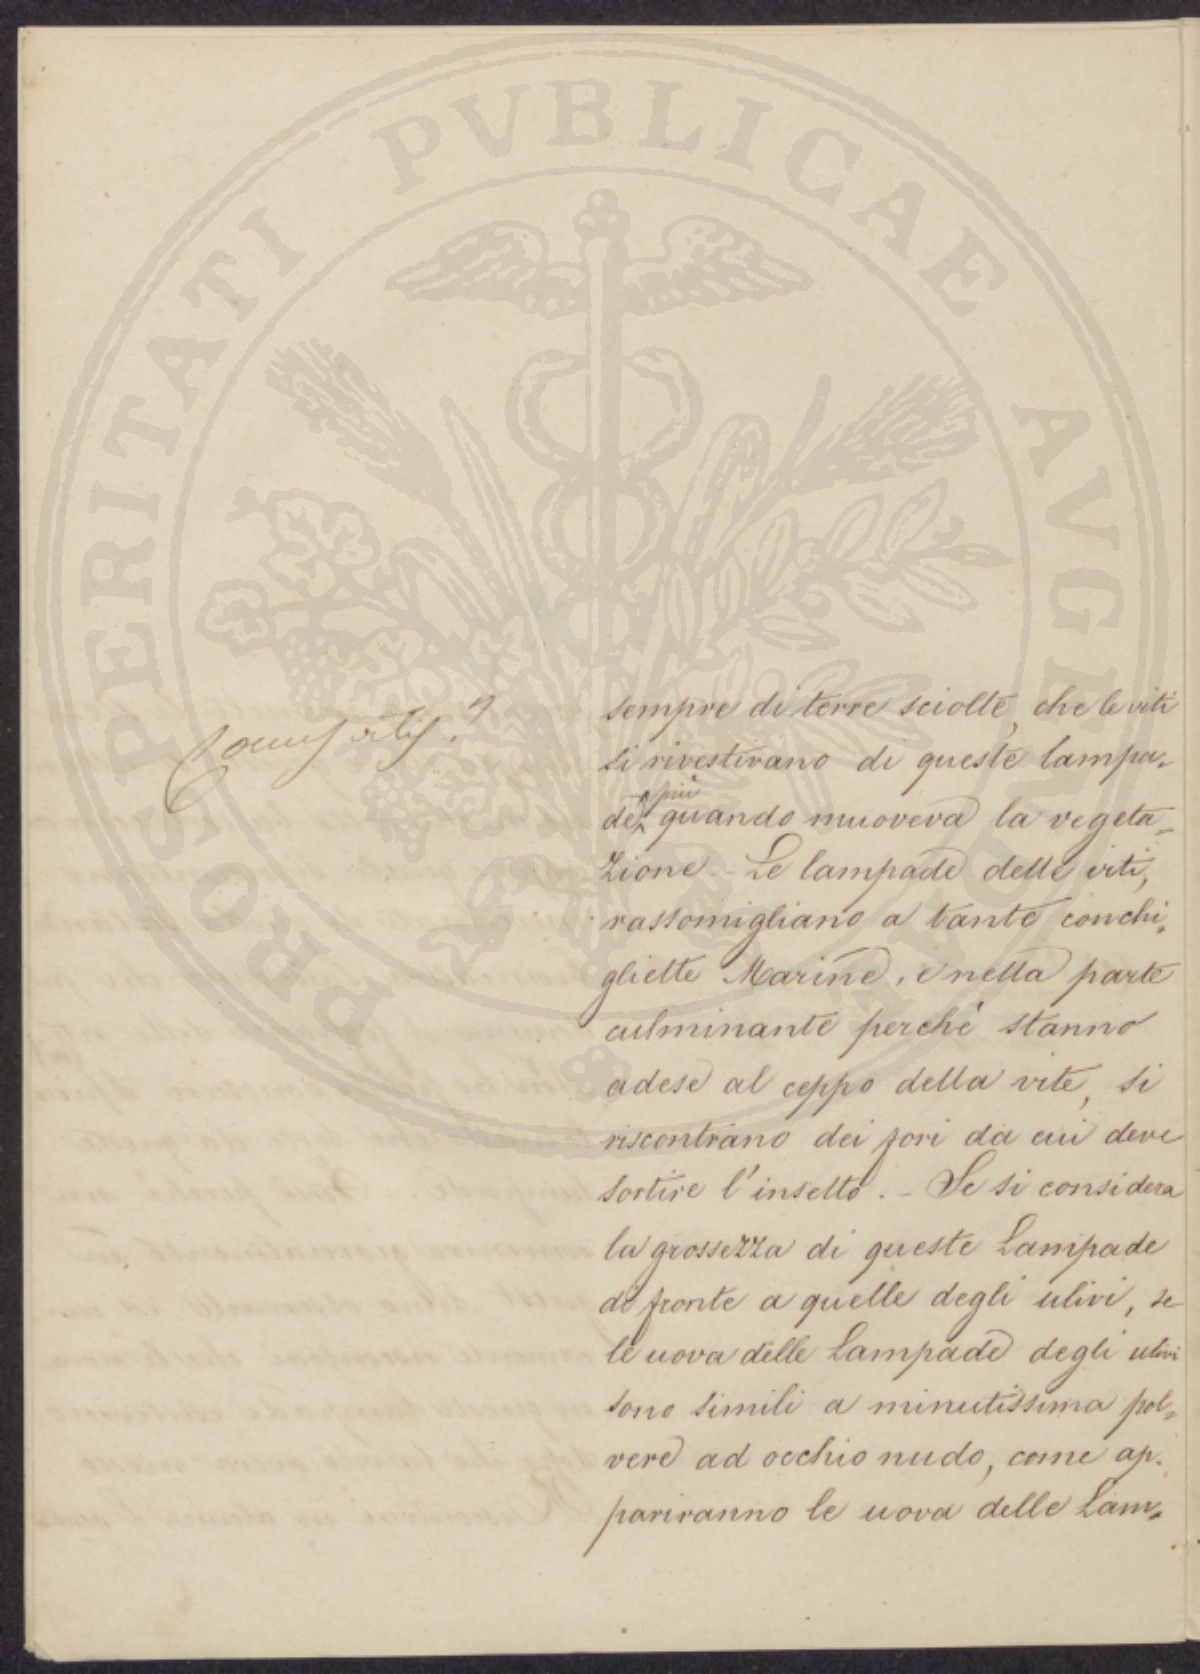 PROSPERITATI PVBLICAE AVGENDAE
sempre di terre sciolte, che le viti
si rivestivano di queste lampa=
de, più quando muoveva la vegeta=
zione. - Le lampade delle viti,
rassomigliano a tante conchi=
gliette Marine, e nella parte
culminante perchè stanno
adese al ceppo della vite, si
riscontrano dei fori da cui deve
sortire l'insetto. - Se si considera
la grossezza di queste Lampade
di fronte a quelle degli ulivi, se
le uova delle Lampade degli ulivi
sono simili a minutissima pol=
vere ad occhio nudo, come ap=
pariranno le uova delle Lam=